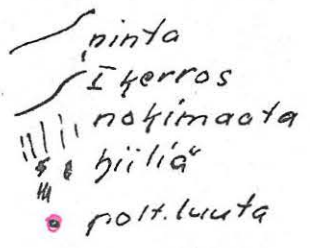 pinta
I kerros
nokimaata
hiiliä
polt. luuta